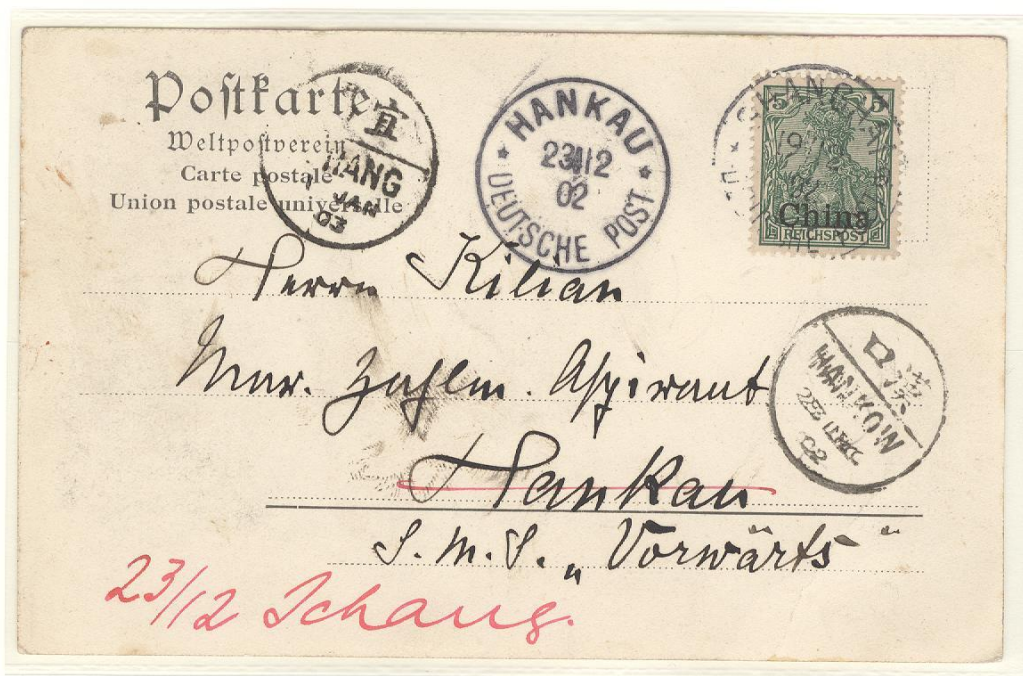 Postkarte
Weltpostverein
Carte postale
Union postale universelle
宜
HANG
1 JAN
03
HANKAU
23/12
02
DEUTSCHE POST
SHANGHAI
5 5
China
REICHSPOST
Herrn Kilian
Mar. Zahlm. Aspirant
Hankau
S. M. S. „Vorwärts"
口漢
HANKOW
DEC
02
23/12 Ichang.